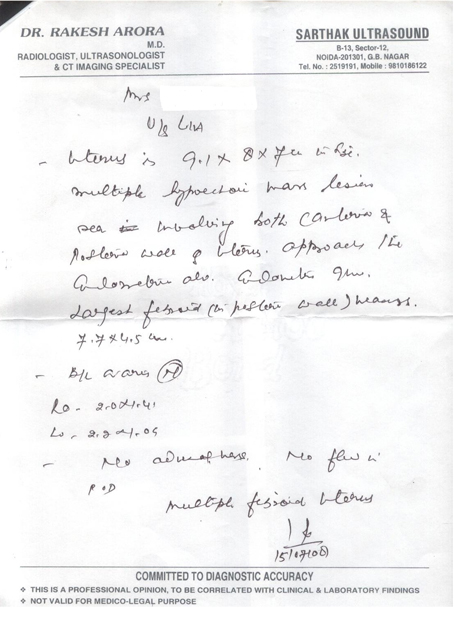 DR. RAKESH ARORA
M.D.
RADIOLOGIST, ULTRASONOLOGIST
& CT IMAGING SPECIALIST
SARTHAK ULTRASOUND
B-13, Sector-12,
NOIDA-201301, G.B. NAGAR
Tel. No. : 2519191, Mobile : 9810186122
Mrs
U/S
- Uterus is 9.1 x 8 x 7 cm in size.
multiple hypoechoic mass lesion
involving both anterior &
Posterior wall of Uterus. approach the
Endometrium also. 9mm.
Largest fibroid (in posterior wall) measures
7.7 x 4.5 cm.
- B/L ovaries (N)
Ro - 2.0x1.41
Lo -
- No adnexal mass. No fluid in
POD
multiple fibroid Uterus
COMMITTED TO DIAGNOSTIC ACCURACY
❖ THIS IS A PROFESSIONAL OPINION, TO BE CORRELATED WITH CLINICAL & LABORATORY FINDINGS
❖ NOT VALID FOR MEDICO-LEGAL PURPOSE